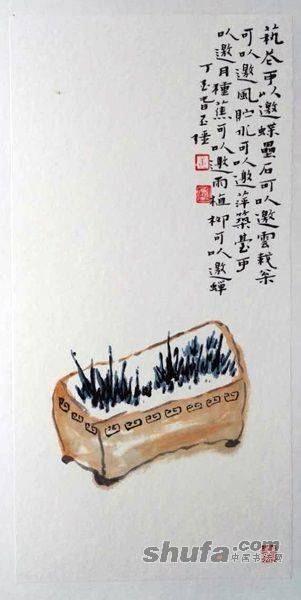 蓺花可以邀蝶壘石可以邀雲栽松
可以邀風貯水可以邀萍築臺可
以邀月種蕉可以邀雨植柳可以邀蟬
shufa.com
中国书法网